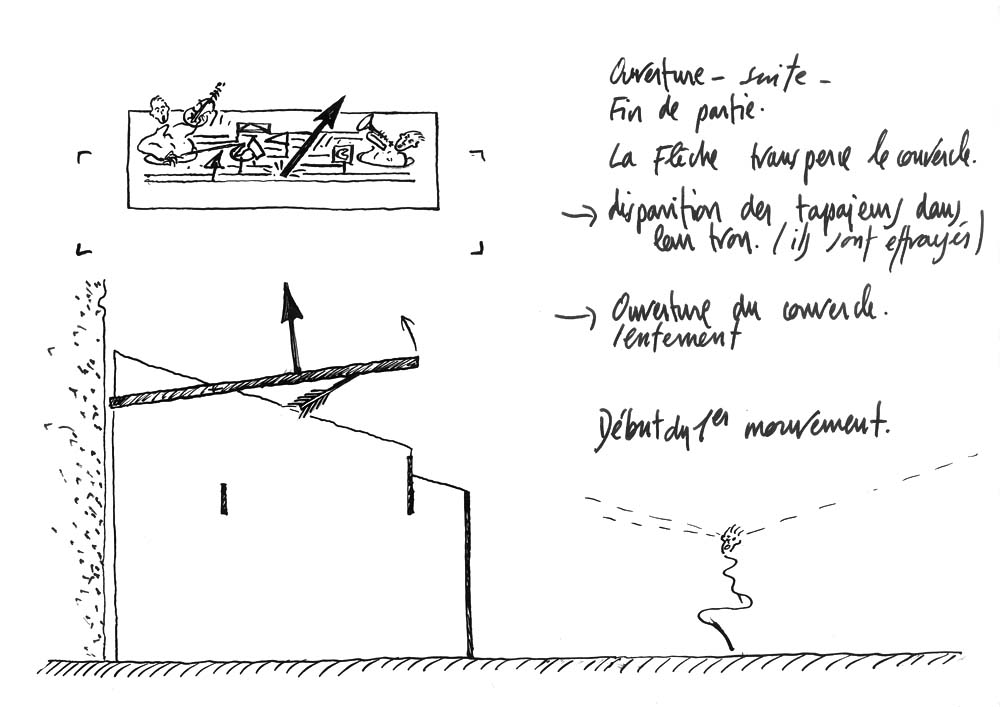 Ouverture - suite -
Fin de partie.
La Flèche transperce le couvercle.
→ disparition des tapajeurs dans
leur trou. (ils sont effrayés)
→ Ouverture du couvercle.
lentement
Début du 1er mouvement.